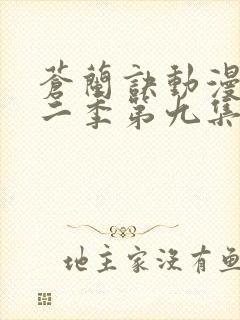 蒼蘭訣動漫
二季第九集
地主家沒有魚